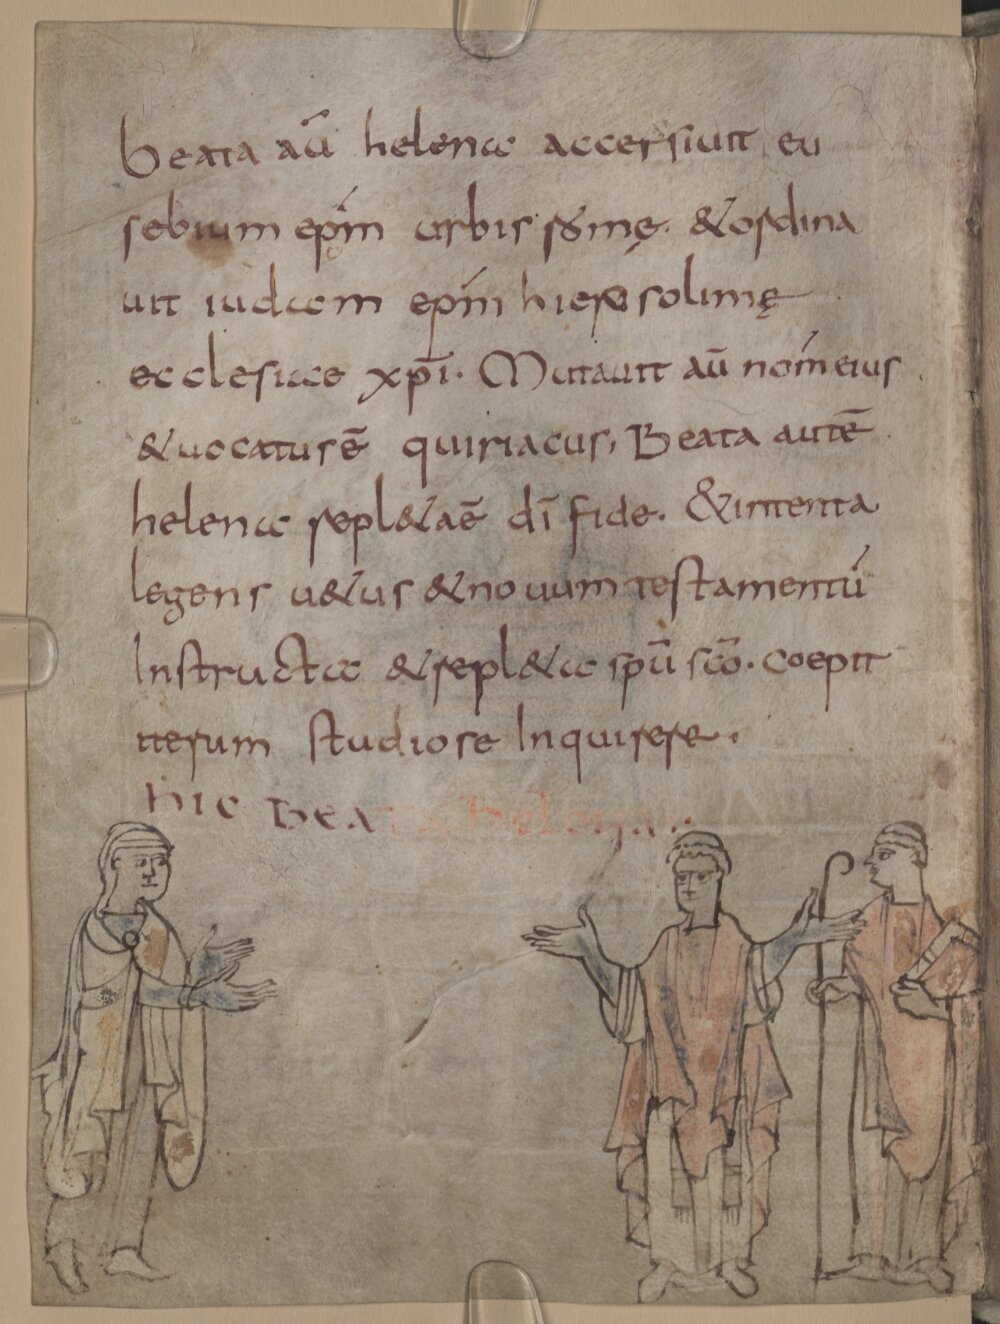 Beata aū helena accersiuit eu
sebium ep̄m urbis romę. & ordina
uit iudam ep̄m hierosolimę
ecclesiae xp̄i. Mutauit aū nom̄ eius
& uocatus ē quiriacus, Beata autē
helena repl&a ē dī fide. & intenta
legens u&us & nouum testamentū
Instructa & repl&a sp̄u sc̄o. coepit
iterum studiose Inquirere.
hic Beata Helena